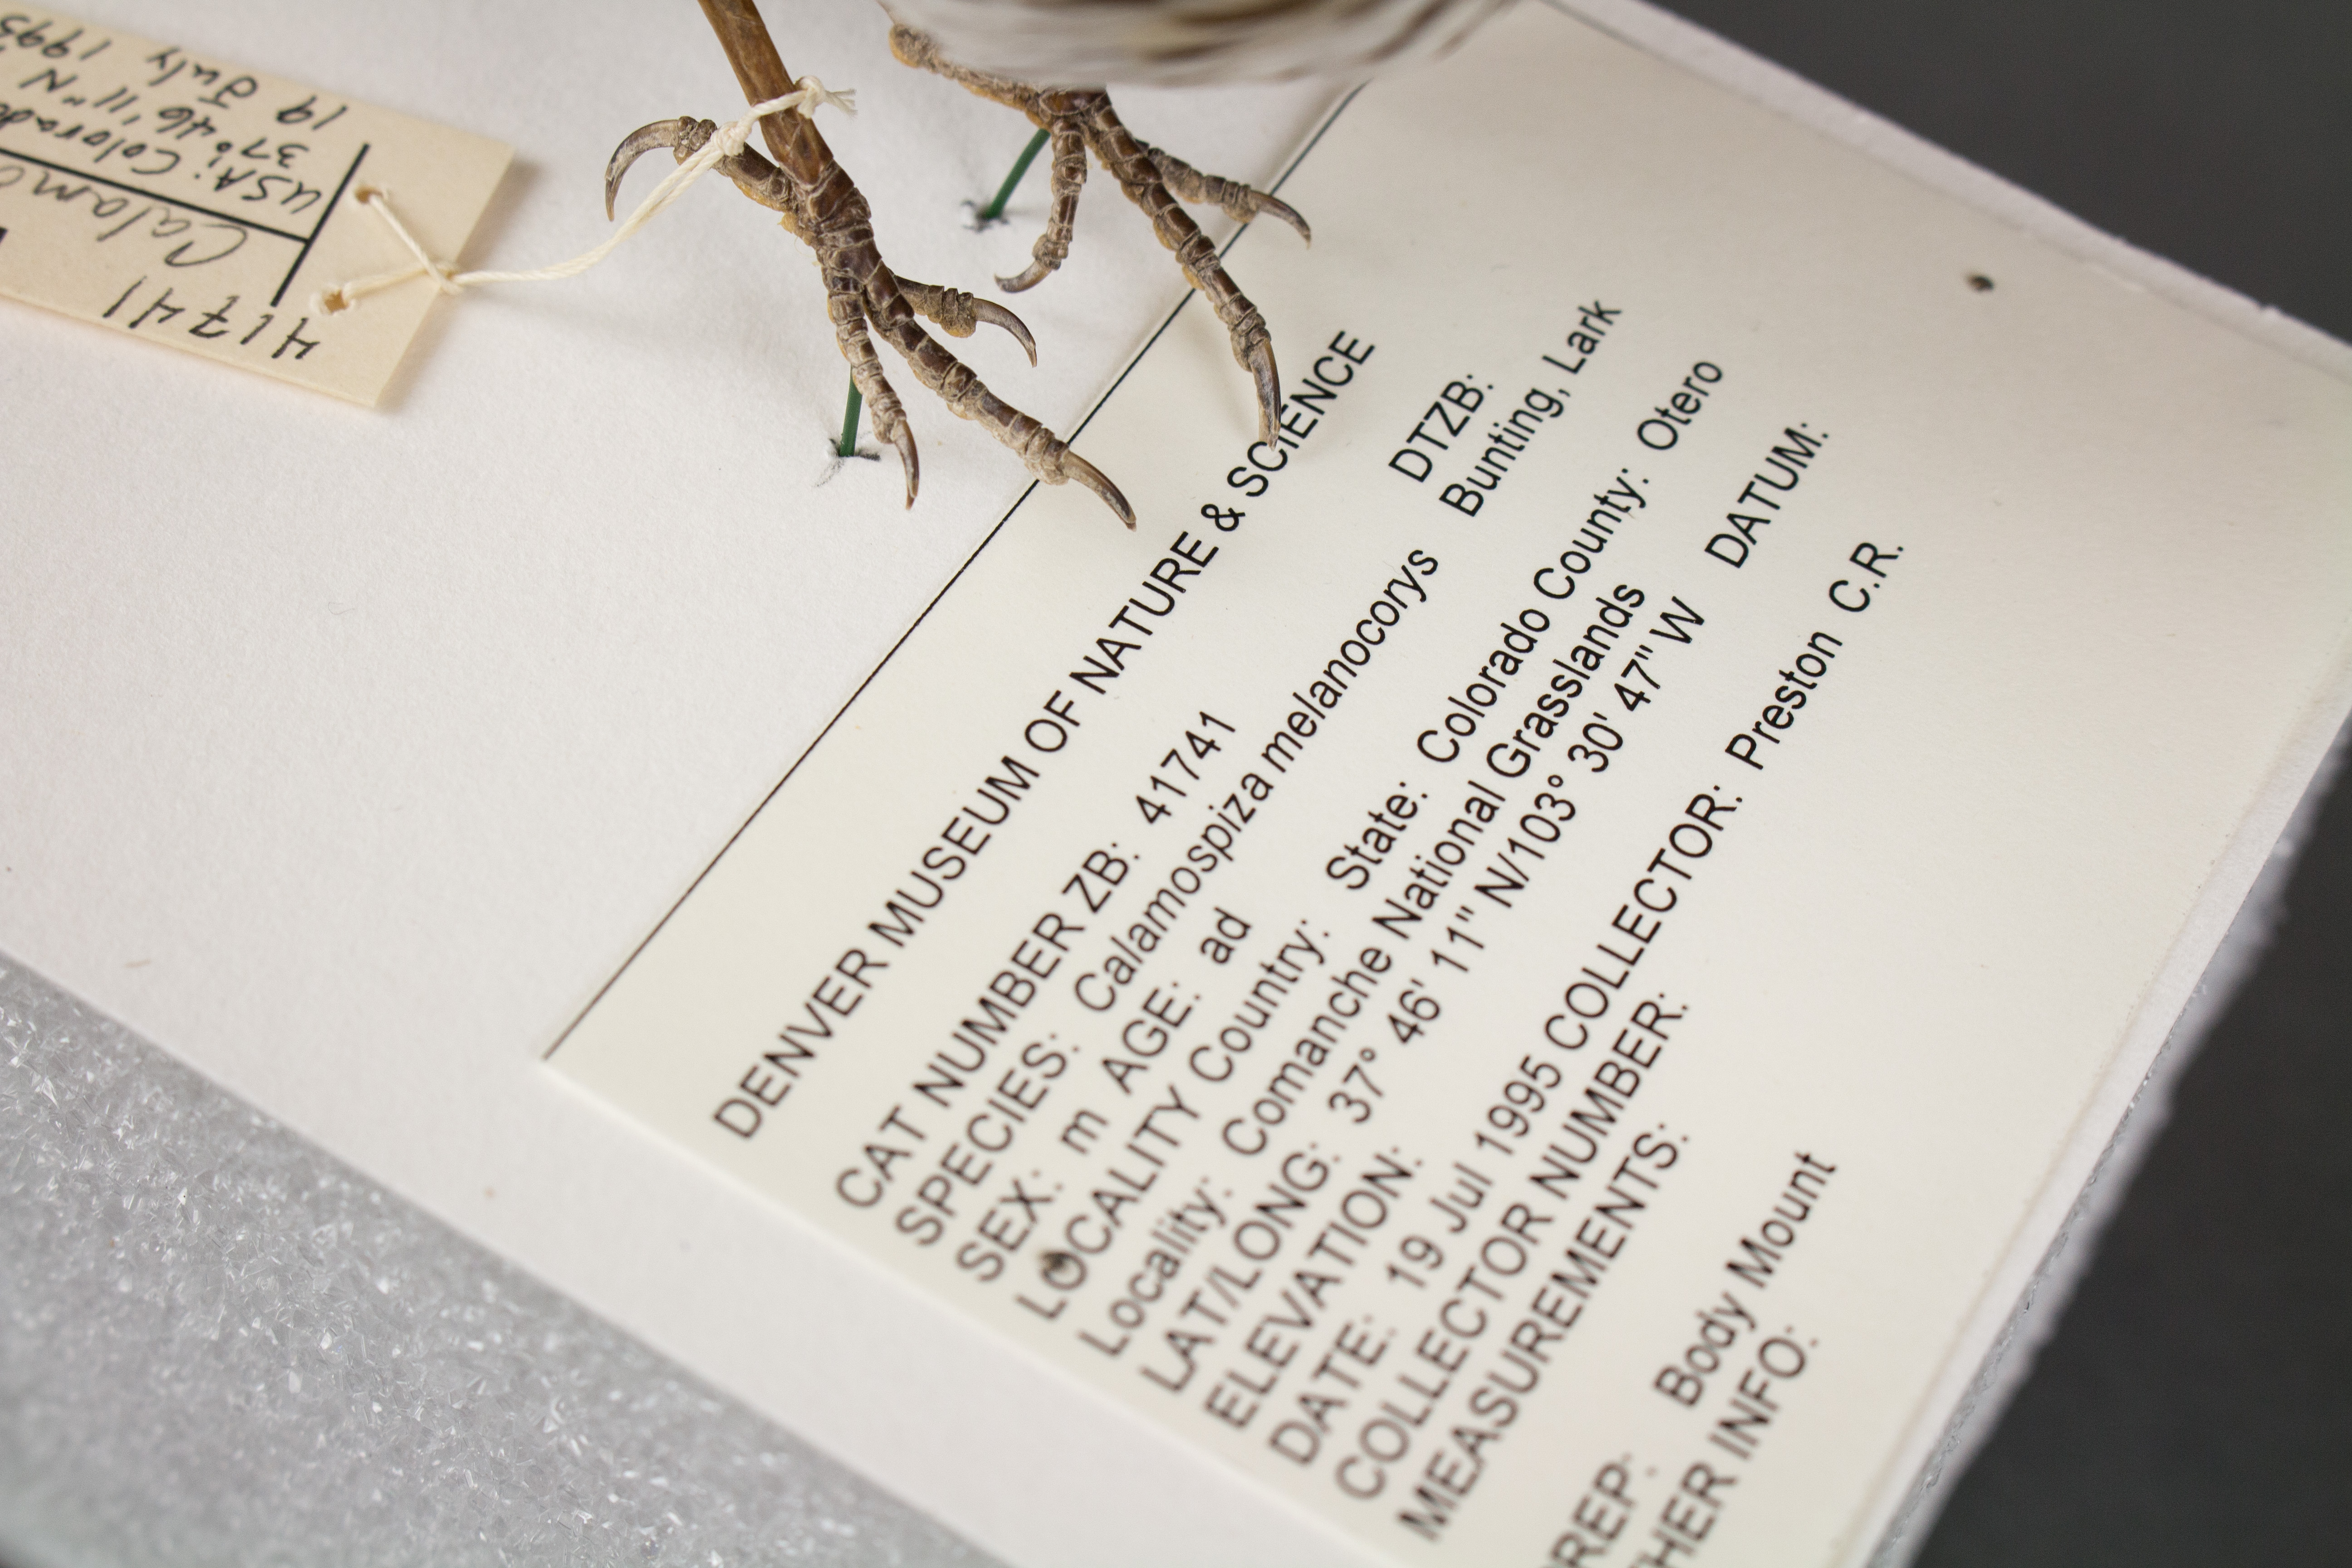 DENVER MUSEUM OF NATURE & SCIENCE
CAT NUMBER ZB: 41741 DTZB:
SPECIES: Calamospiza melanocorys Bunting, Lark
SEX: m AGE: ad
LOCALITY Country: State: Colorado County: Otero
Locality: Comanche National Grasslands
LAT/LONG: 37° 46' 11" N/103° 30' 47" W DATUM:
ELEVATION:
DATE: 19 Jul 1995 COLLECTOR: Preston C.R.
COLLECTOR NUMBER:
MEASUREMENTS:
REP: Body Mount
THER INFO:
41741
Calamo
USA: Colorado
37° 46' 11" N
19 July 1995